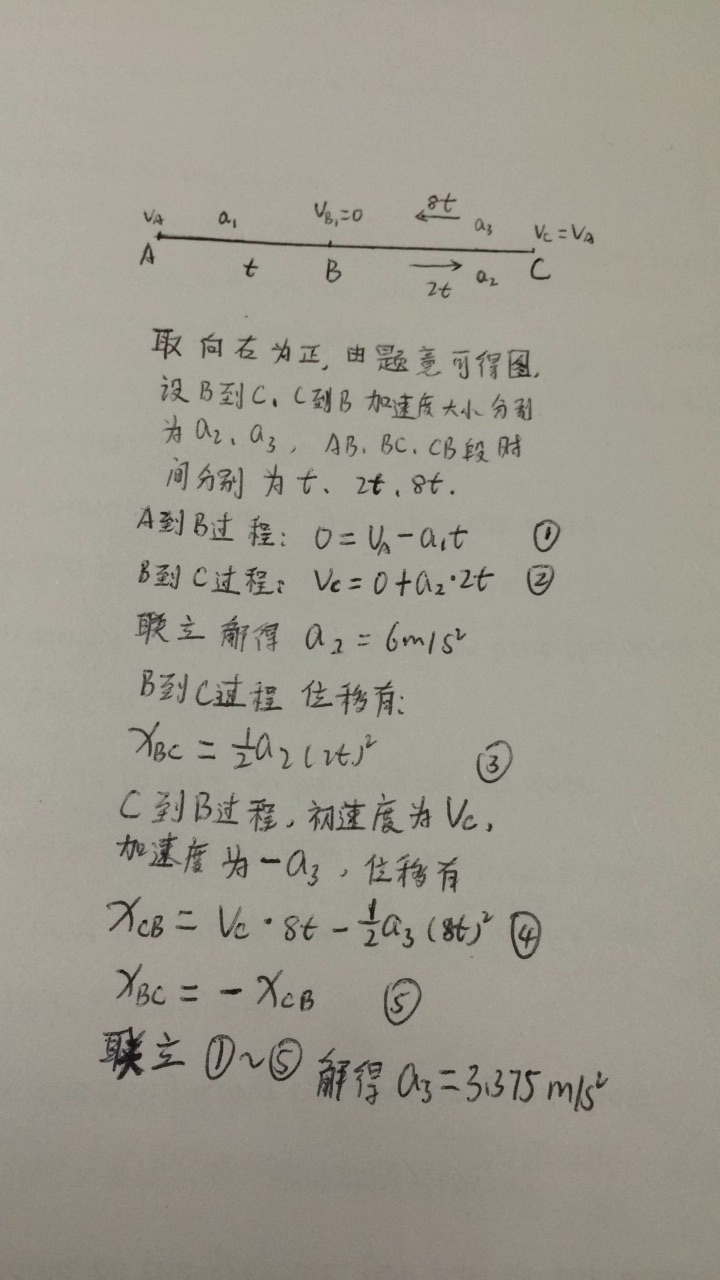 VA a₁ VB₁=0 8t a₃ VC=VA
A t B 2t a₂ C
取向右为正,由题意可得图,
设B到C、C到B加速度大小分别
为a₂、a₃,AB、BC、CB段时
间分别为t、2t、8t.
A到B过程: 0=VA-a₁t ①
B到C过程: Vc=0+a₂·2t ②
联立解得 a₂=6m/s²
B到C过程位移有:
XBC=½a₂(2t)² ③
C到B过程,初速度为Vc,
加速度为-a₃,位移有
XCB=Vc·8t-½a₃(8t)² ④
XBC=-XCB ⑤
联立①~⑤解得a₃=3.375m/s²